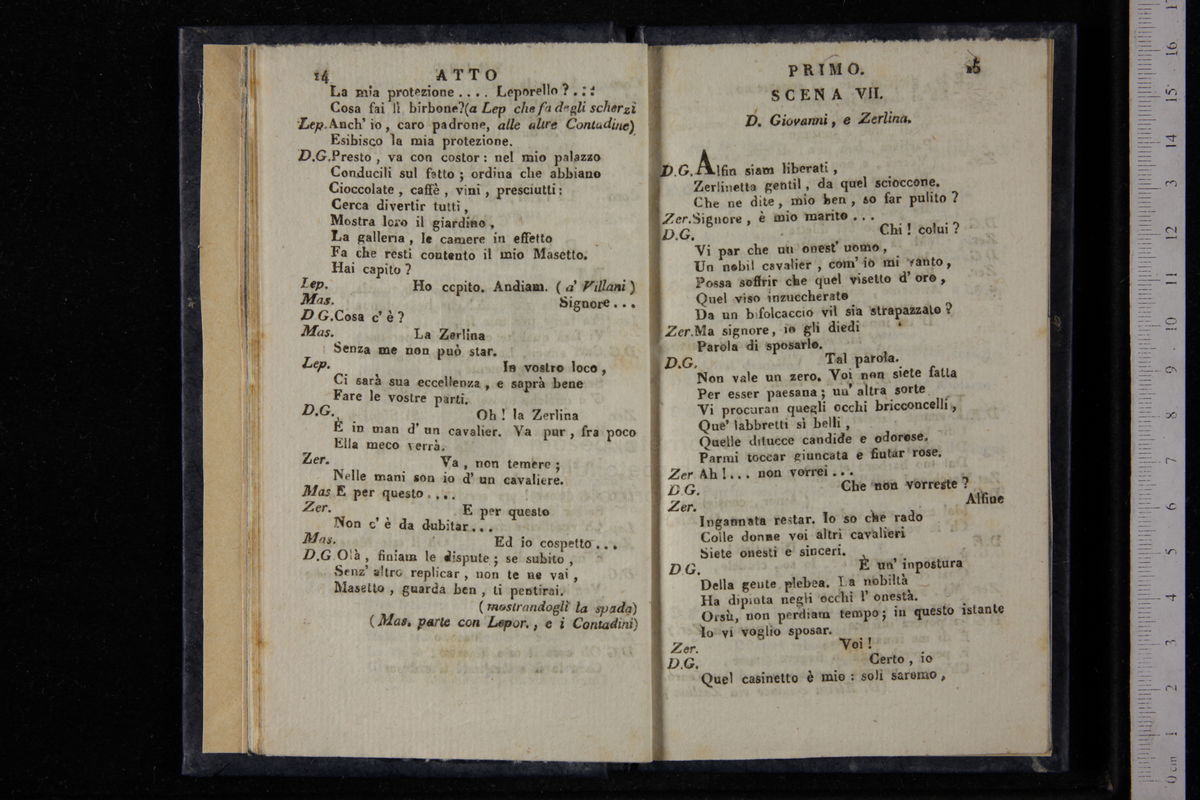 14 ATTO
La mia protezione .... Leporello ? .::
Cosa fai lì birbone?(a Lep che fa degli scherzi
Lep.Anch' io, caro padrone, alle altre Contadine)
Esibisco la mia protezione.
D.G.Presto, va con costor: nel mio palazzo
Conducili sul fatto; ordina che abbiano
Cioccolate, caffè, vini, presciutti:
Cerca divertir tutti,
Mostra loro il giardino,
La galleria, le camere in effetto
Fa che resti contento il mio Masetto.
Hai capito?
Lep. Ho ccpito. Andiam. (a' Villani)
Mas. Signore...
D G.Cosa c' è?
Mas. La Zerlina
Senza me non può star.
Lep. In vostro loco,
Ci sarà sua eccellenza, e saprà bene
Fare le vostre parti.
D.G. Oh! la Zerlina
È in man d' un cavalier. Va pur, fra poco
Ella meco verrà.
Zer. Va, non temere;
Nelle mani son io d' un cavaliere.
Mas E per questo ....
Zer. E per questo
Non c' è da dubitar...
Mas. Ed io cospetto...
D.G Olà, finiam le dispute; se subito,
Senz' altro replicar, non te ne vai,
Masetto, guarda ben, ti pentirai.
(mostrandogli la spada)
(Mas. parte con Lepor., e i Contadini)
PRIMO. 15
SCENA VII.
D. Giovanni, e Zerlina.
D.G. Alfin siam liberati,
Zerlinetta gentil, da quel scioccone.
Che ne dite, mio ben, so far pulito?
Zer.Signore, è mio marito...
D.G. Chi! colui?
Vi par che un onest' uomo,
Un nobil cavalier, com' io mi vanto,
Possa soffrir che quel visetto d' oro,
Quel viso inzuccherato
Da un bifolcaccio vil sia strapazzato?
Zer.Ma signore, io gli diedi
Parola di sposarlo.
D.G. Tal parola.
Non vale un zero. Voi non siete fatta
Per esser paesana; un' altra sorte
Vi procuran quegli occhi bricconcelli,
Que' labbretti sì belli,
Quelle ditucce candide e odorose.
Parmi toccar giuncata e fiutar rose.
Zer Ah!... non vorrei...
D.G. Che non vorreste?
Zer. Alfine
Ingannata restar. Io so che rado
Colle donne voi altri cavalieri
Siete onesti e sinceri.
D G. È un' inpostura
Della gente plebea. La nobiltà
Ha dipinta negli occhi l' onestà.
Orsù, non perdiam tempo; in questo istante
Io vi voglio sposar.
Zer. Voi!
D.G. Certo, io
Quel casinetto è mio: soli saremo,
0 cm 1 2 3 4 5 6 7 8 9 10 11 12 13 14 15 16 17